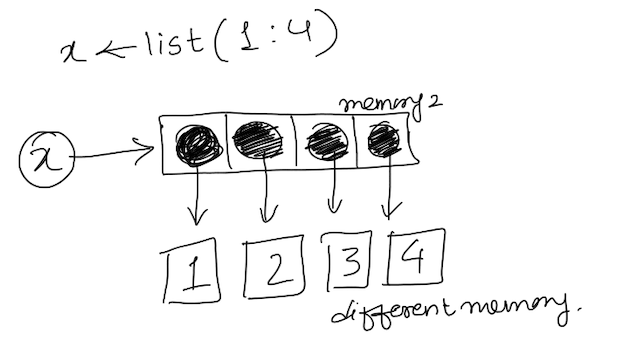 x ← list(1:4)
memory 2
x
1 2 3 4
different memory.